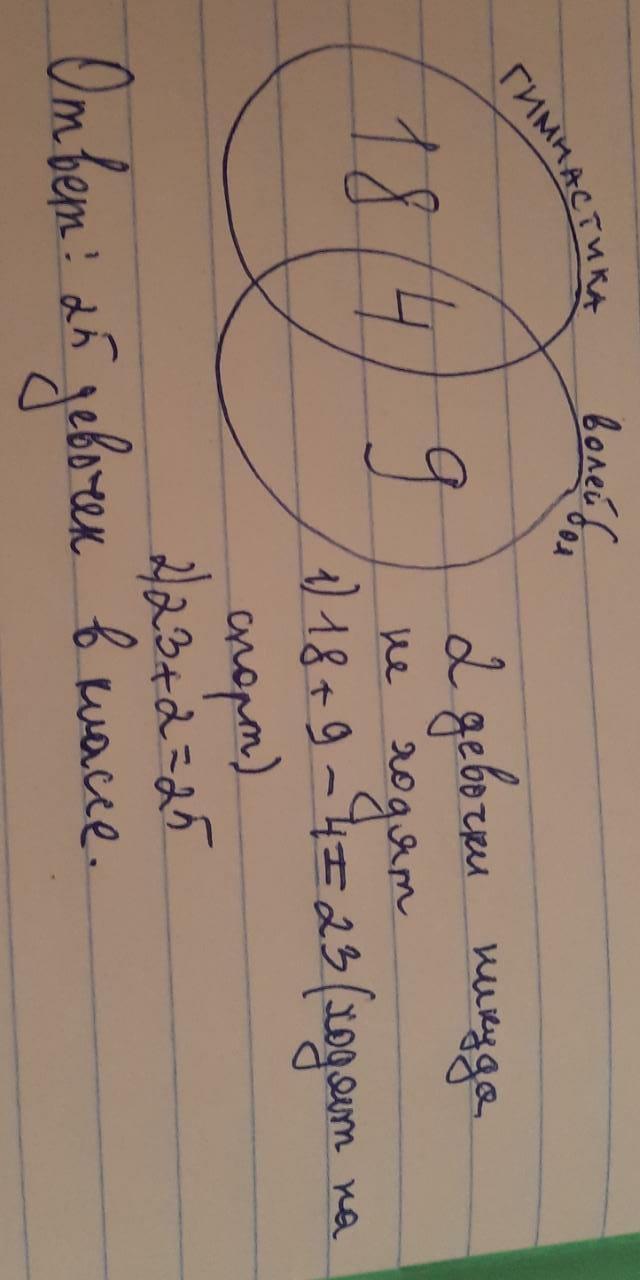 гимнастика
волейбол
18 4 9
2 девочки никуда
не ходят
1) 18 + 9 - 4 = 23 (ходят на
спорт)
2) 23 + 2 = 25
Ответ: 25 девочек в классе.